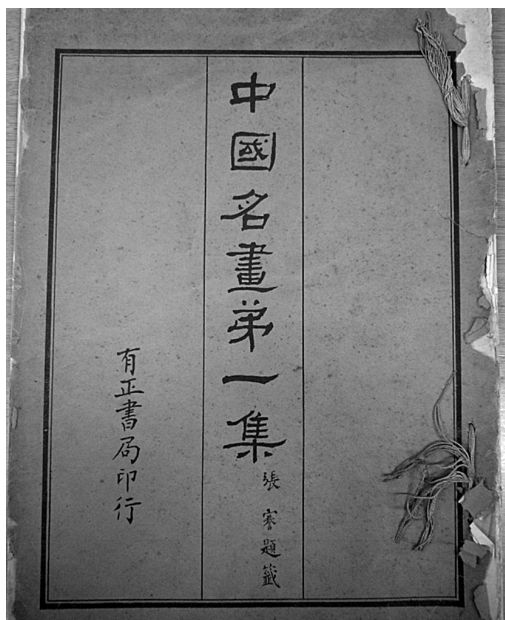 中國名畫弟一集
張謇題籤
有正書局印行